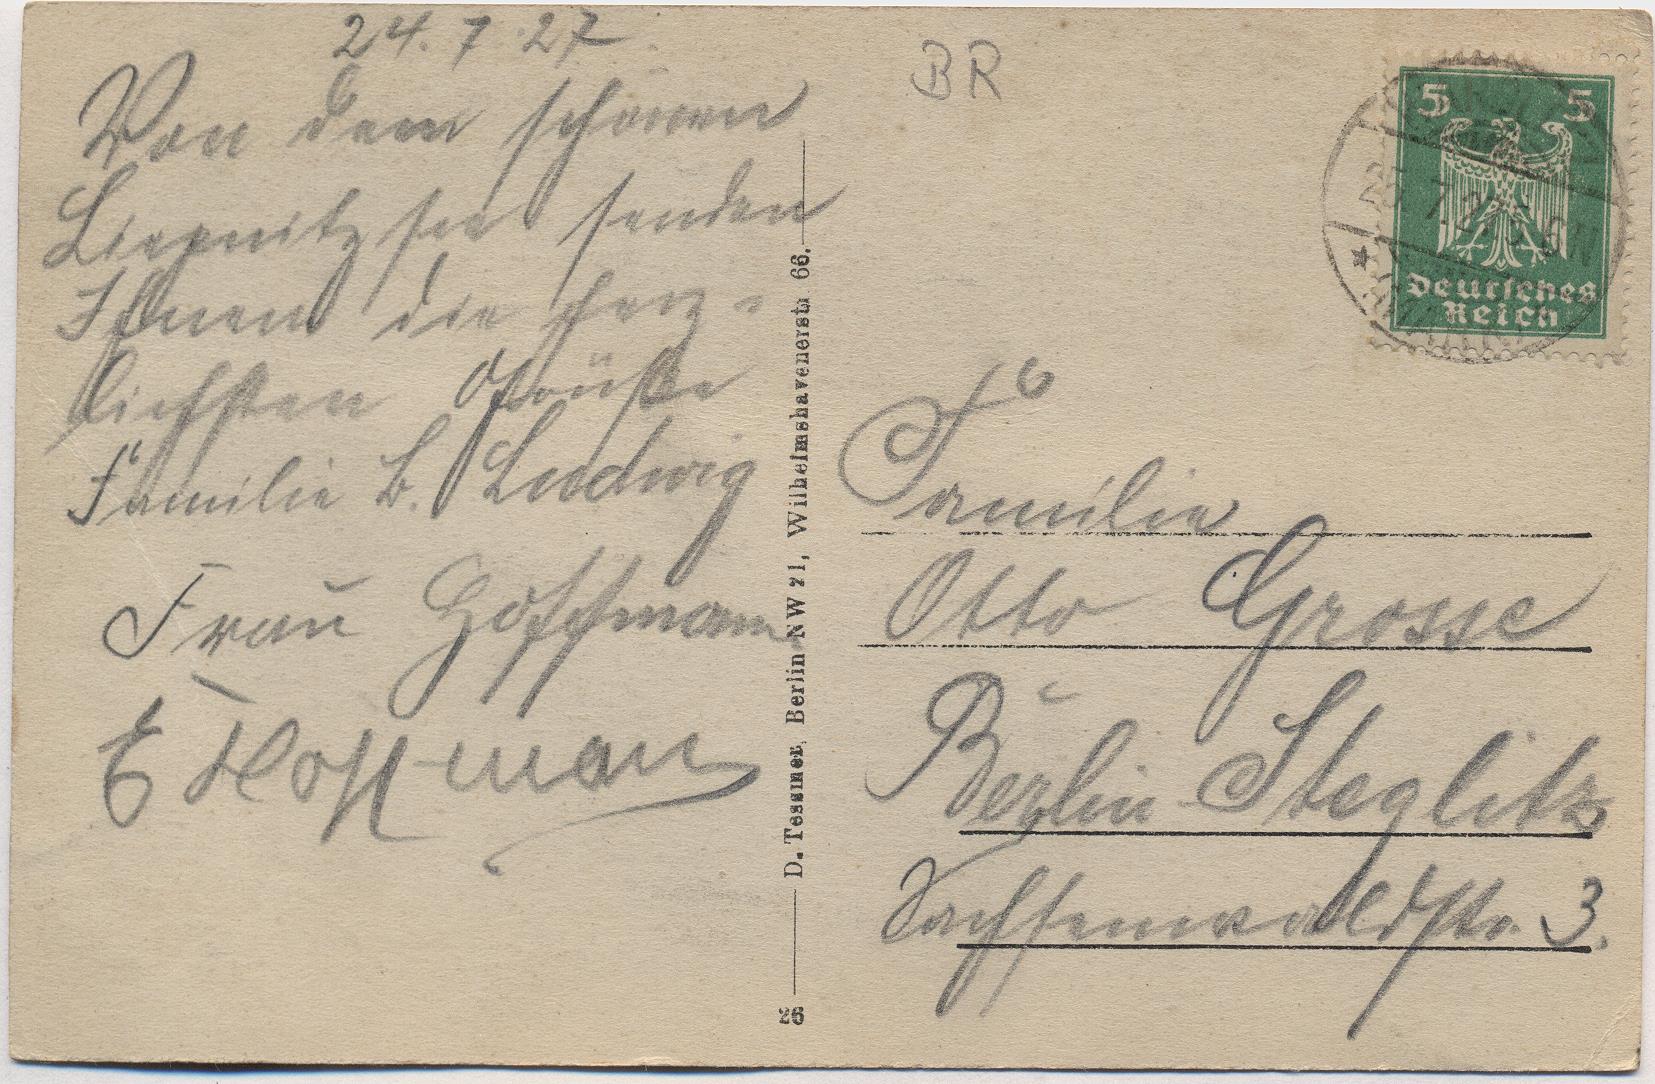 24.7.27
Von dem schönen
Liepnitzsee senden
Ihnen die herz-
lichsten Grüße
Familie B. Ludwig
Frau Hoffmann
E Hoffman
D. Tessmer, Berlin NW 21, Wilhelmshavenerstr. 66.
26
BR
5 5
Deutsches
Reich
Familie
Otto Grosse
Berlin Steglitz
Sachsenwaldstr. 3.